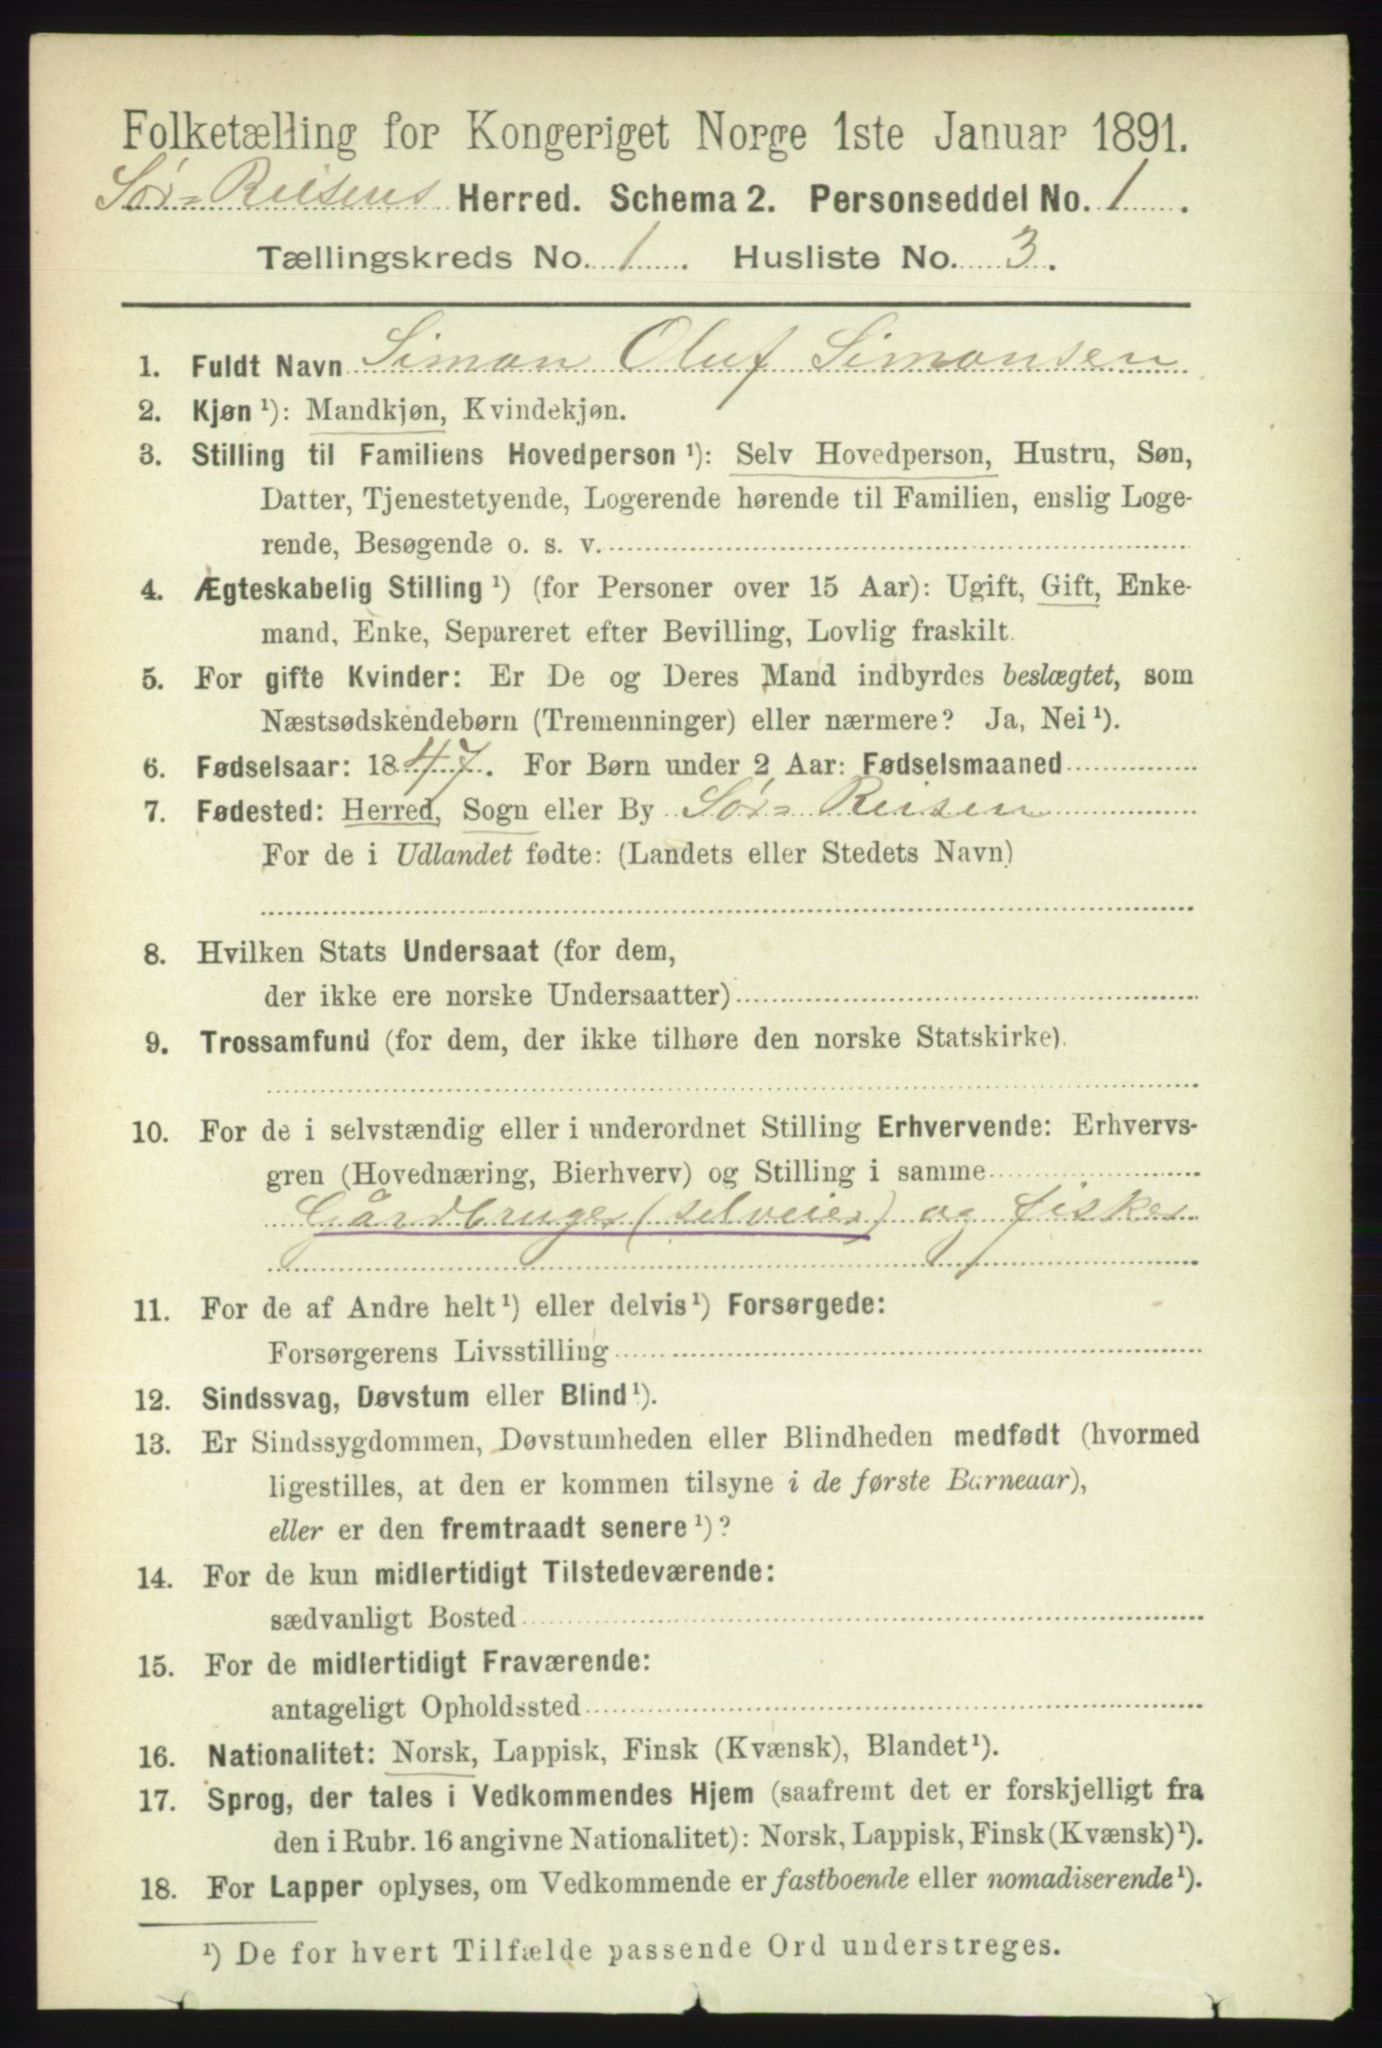 Folketælling for Kongeriget Norge 1ste Januar 1891.
Sør-Reisens Herred. Schema 2. Personseddel No. 1.
Tællingskreds No. 1. Husliste No. 3.
1. Fuldt Navn Simon Oluf Simonsen
2. Kjøn ¹): Mandkjøn, Kvindekjøn.
3. Stilling til Familiens Hovedperson ¹): Selv Hovedperson, Hustru, Søn,
Datter, Tjenestetyende, Logerende hørende til Familien, enslig Loge-
rende, Besøgende o. s. v.
4. Ægteskabelig Stilling ¹) (for Personer over 15 Aar): Ugift, Gift, Enke-
mand, Enke, Separeret efter Bevilling, Lovlig fraskilt.
5. For gifte Kvinder: Er De og Deres Mand indbyrdes beslægtet, som
Næstsødskendebørn (Tremenninger) eller nærmere? Ja, Nei ¹).
6. Fødselsaar: 1847. For Børn under 2 Aar: Fødselsmaaned
7. Fødested: Herred, Sogn eller By Sør-Reisen
For de i Udlandet fødte: (Landets eller Stedets Navn)
8. Hvilken Stats Undersaat (for dem,
der ikke ere norske Undersaatter)
9. Trossamfund (for dem, der ikke tilhøre den norske Statskirke).
10. For de i selvstændig eller i underordnet Stilling Erhvervende: Erhvervs-
gren (Hovednæring, Bierhverv) og Stilling i samme
Gårdbruger (selveier) og fisker
11. For de af Andre helt ¹) eller delvis ¹) Forsørgede:
Forsørgerens Livsstilling
12. Sindssvag, Døvstum eller Blind ¹).
13. Er Sindssygdommen, Døvstumheden eller Blindheden medfødt (hvormed
ligestilles, at den er kommen tilsyne i de første Barneaar),
eller er den fremtraadt senere ¹)?
14. For de kun midlertidigt Tilstedeværende:
sædvanligt Bosted
15. For de midlertidigt Fraværende:
antageligt Opholdssted
16. Nationalitet: Norsk, Lappisk, Finsk (Kvænsk), Blandet ¹).
17. Sprog, der tales i Vedkommendes Hjem (saafremt det er forskjelligt fra
den i Rubr. 16 angivne Nationalitet): Norsk, Lappisk, Finsk (Kvænsk) ¹).
18. For Lapper oplyses, om Vedkommende er fastboende eller nomadiserende ¹).
¹) De for hvert Tilfælde passende Ord understreges.